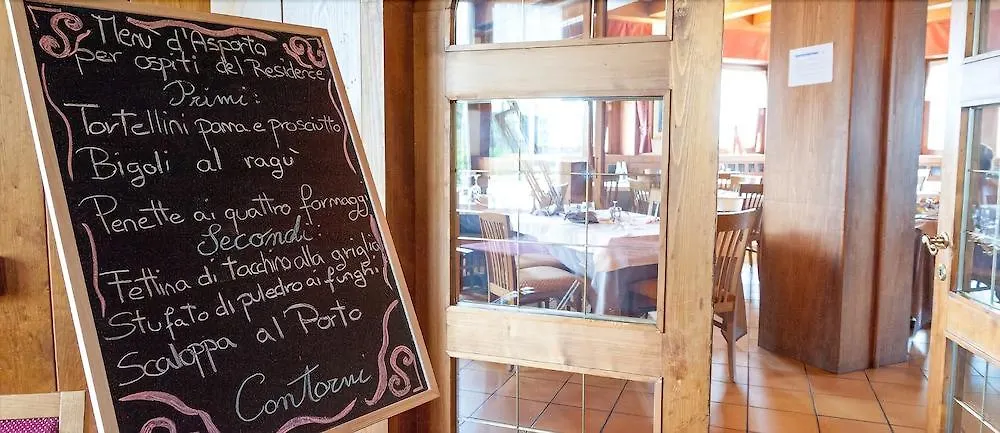 Menu d'Asporto
per ospiti del Residence
Primi:
Tortellini panna e prosciutto
Bigoli al ragù
Penette ai quattro formaggi
Secondi
Fettina di tacchino alla griglia
Stufato di puledro ai funghi
Scaloppa al Porto
Contorni